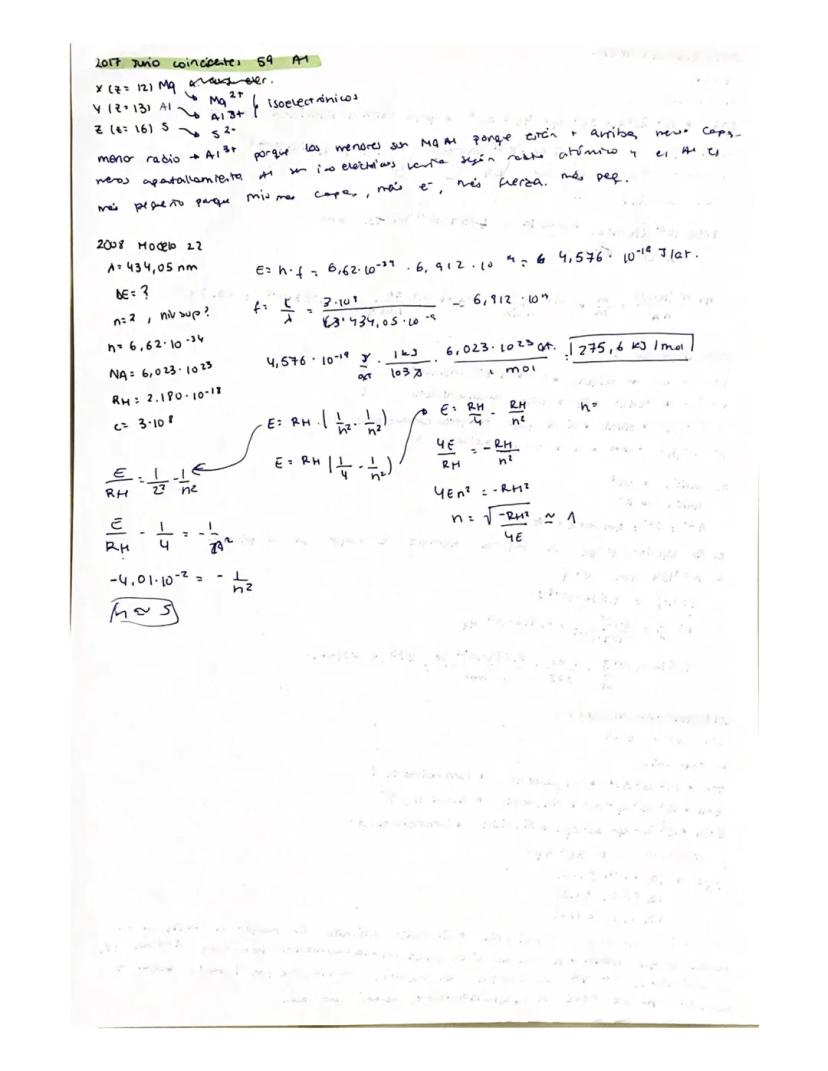 2017 Junio coincidentes 59 A1
X (Z= 12) Mg
Mg 2+
Y (Z= 13) Al
Al 3+
isoelectrónicos
Z (Z= 16) S
S 2-
menor radio → Al 3+ porque los menores son Mg Al porque están + arriba, menos capas
menos apantallamiento. Al son isoeléctricos varía según radio atómico y el Al es
más pequeño porque mismas capas, más e-, más fuerza. más peq.
2008 Modelo 22
λ= 434,05 nm
ΔE= ?
n=2 , niv sup?
h= 6,62·10 -34
NA= 6,023·10 23
RH= 2.180·10-18
c= 3·10 8
E= h·f = 6,62·10-34 · 6,912·10 14 = 4,576·10-19 J/at.
f= c/λ = 3·10 8 / 434,05·10 -9 = 6,912·10 14
4,576·10-19 J/at · 1 kJ/10 3 J · 6,023·10 23 at./1 mol = 275,6 kJ/mol
E= RH·(1/n² - 1/n²)
E= RH (1/4 - 1/n²)
E= RH/4 - RH/n²
n=
4E/RH = -RH/n²
4En² = -RH²
n= √(-RH²/4E) ≈ 1
E/RH = 1/2² - 1/n²
E/RH - 1/4 = - 1/n²
-4,01·10-2 = - 1/n²
n ≈ 5